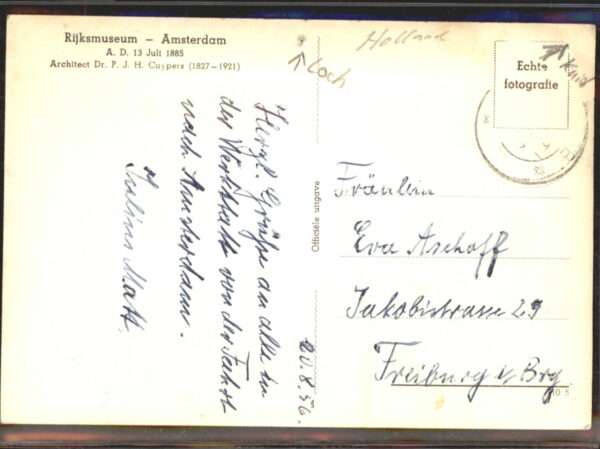 Rijksmuseum – Amsterdam
A. D. 13 Juli 1885
Architect Dr. P. J. H. Cuypers (1827–1921)
Holland
Loch
Knick
Echte
fotografie
Herzl. Grüße an alle in
der Werkstatt von der Fahrt
nach Amsterdam.
Julius Matt.
20.8.56.
Officiele uitgave
Fräulein
Eva Aschoff
Jakobistrasse 29
Freiburg i/ Brg